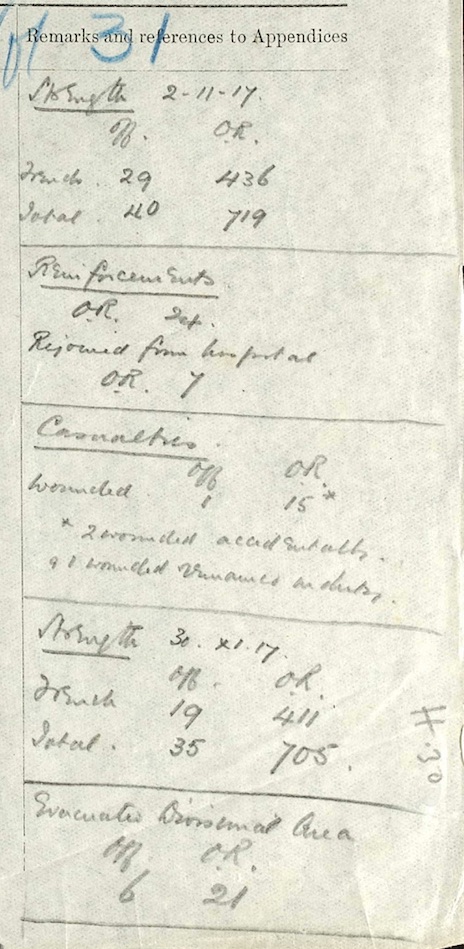 Vol 31
Remarks and references to Appendices
Strength 2-11-17.
Off. O.R.
Trench. 29 436
Total. 40 719
Reinforcements
O.R. 24.
Rejoined from hospital
O.R. 7
Casualties.
Off O.R.
Wounded 1 15*
* 2 wounded accidentally.
& 1 wounded remained on duty.
Strength 30. XI.17.
Off. O.R.
Trench 19 411
Total. 35 705.
Evacuated Divisional Area
Off O.R.
6 21